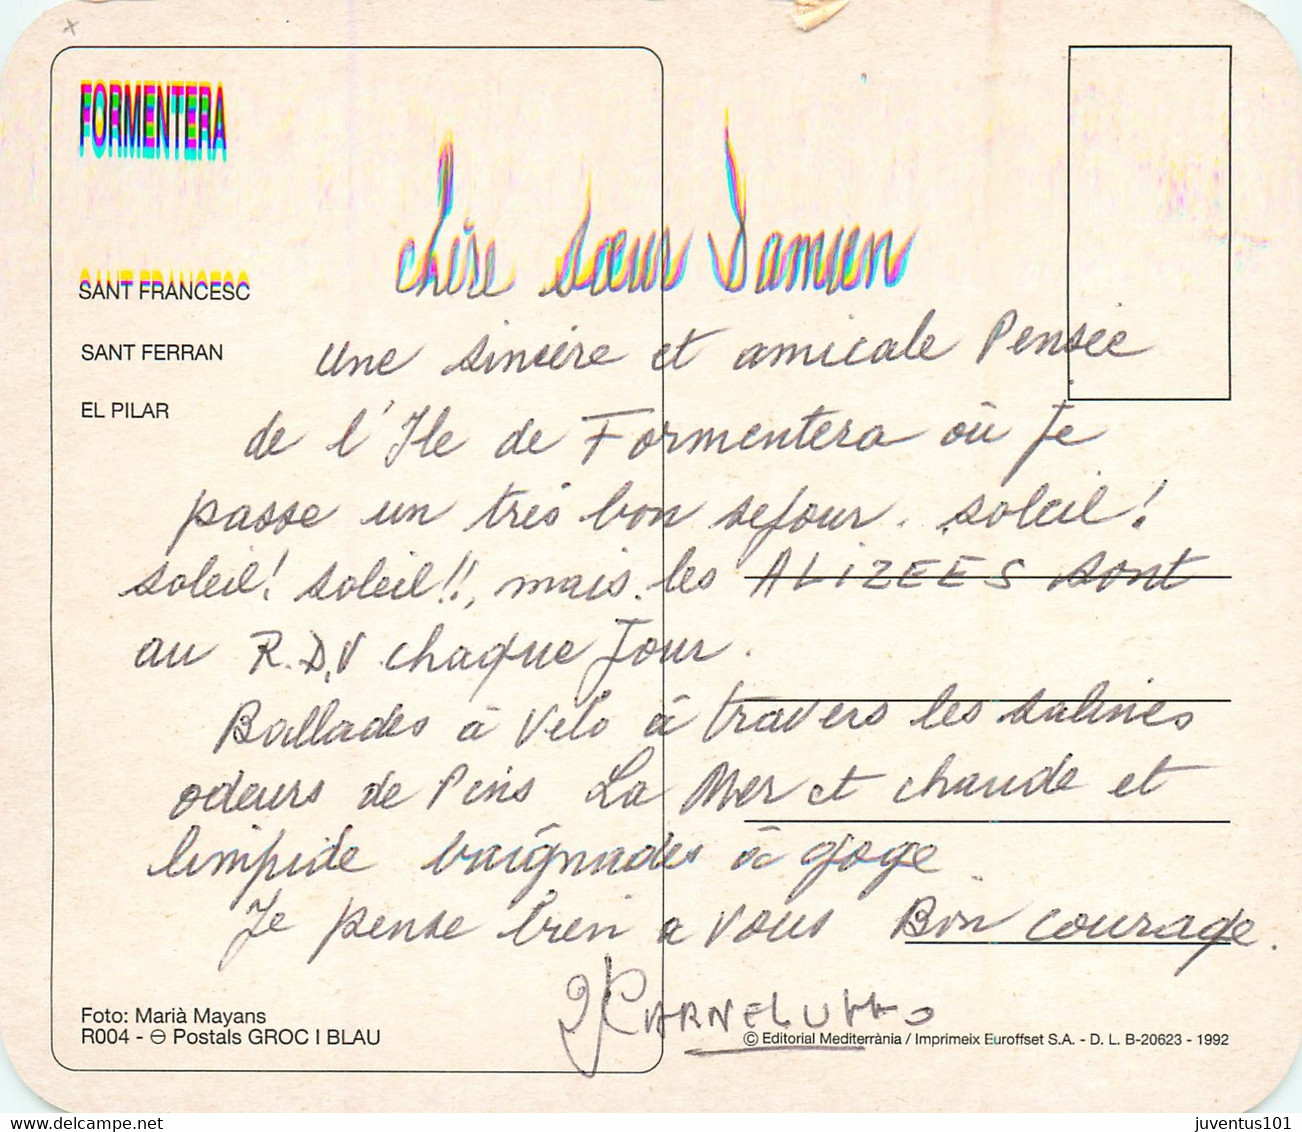 FORMENTERA
SANT FRANCESC
SANT FERRAN
EL PILAR
Chère sœur Damien
une sincère et amicale Pensée
de l'Ile de Formentera où Je
passe un très bon sejour. soleil!
soleil! soleil!!, mais les ALIZEES sont
au R.D.V chaque Jour.
Ballades à Velo à travers les salines
odeurs de Pins La Mer et chaude et
limpide baignades à gogo
Je pense bien a vous Bon courage.
CARNELUTTO
Foto: Marià Mayans
R004 - ⊖ Postals GROC I BLAU
© Editorial Mediterrània / Imprimeix Euroffset S.A. - D. L. B-20623 - 1992
www.delcampe.net
juventus101